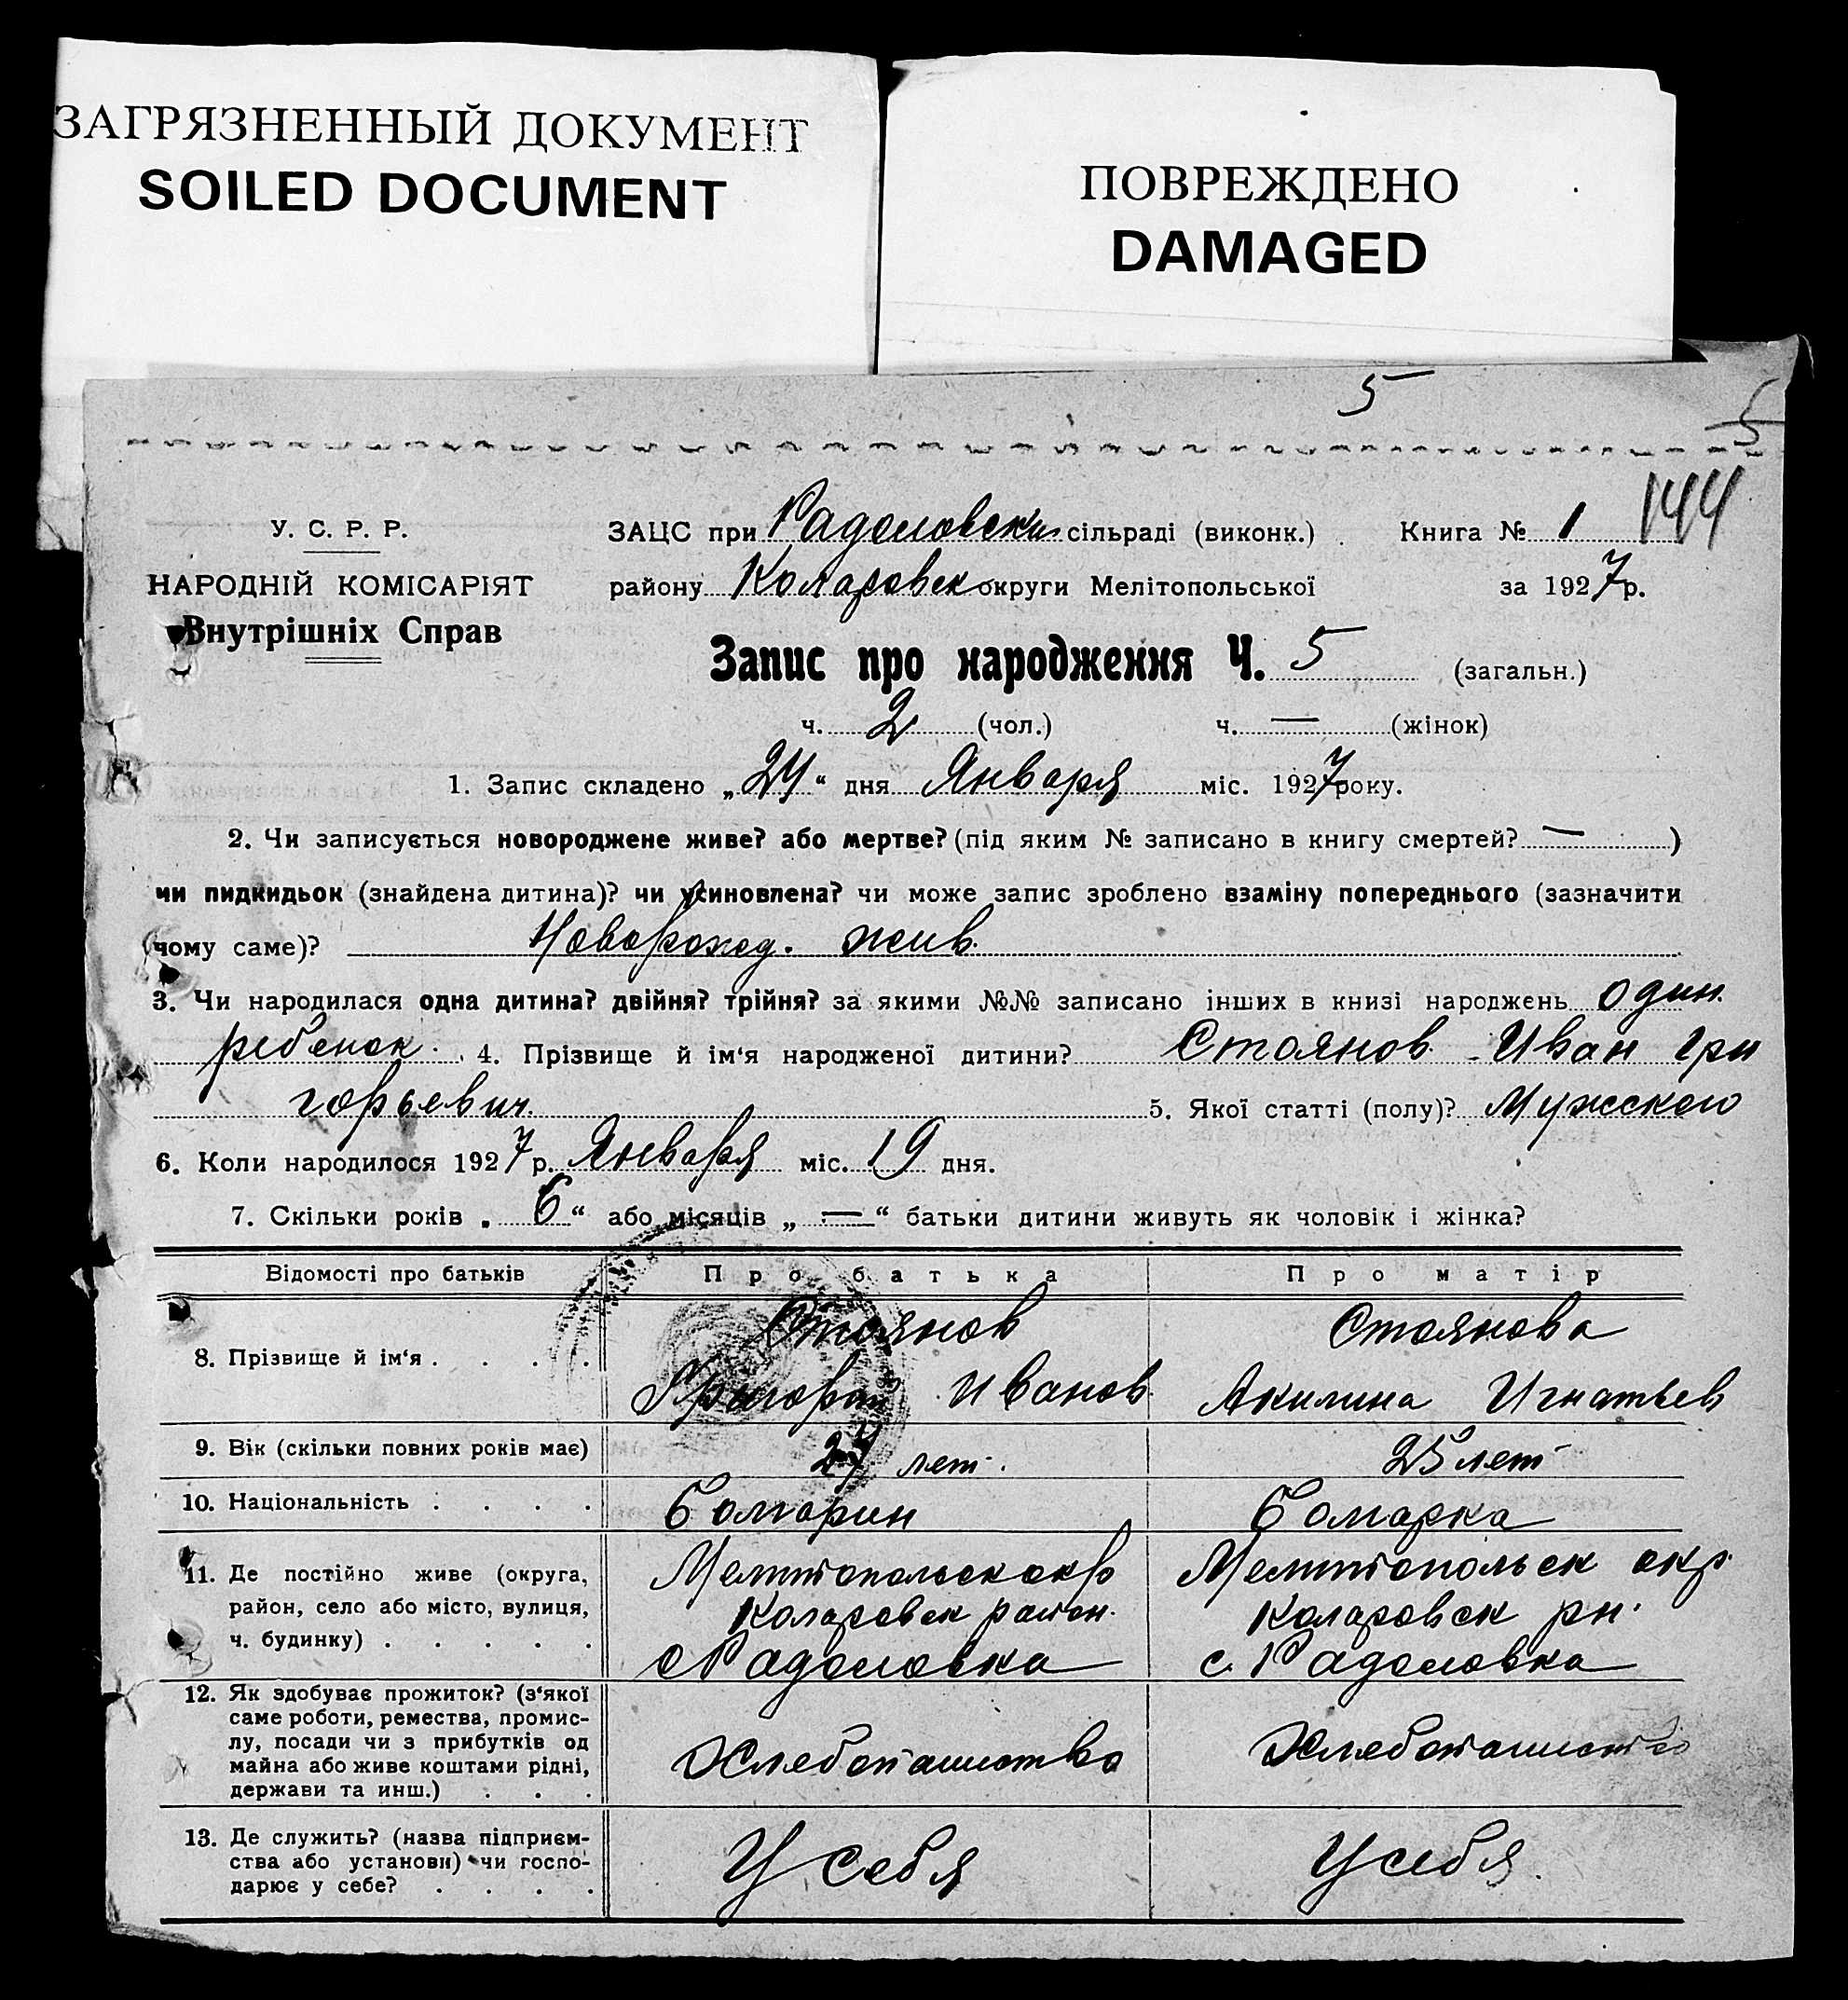 ЗАГРЯЗНЕННЫЙ ДОКУМЕНТ
SOILED DOCUMENT
ПОВРЕЖДЕНО
DAMAGED
5
5
144
У. С. Р. Р.
НАРОДНІЙ КОМІСАРІЯТ
Внутрішніх Справ
ЗАЦС при Радоловский сільраді (виконк.) Книга № 1
району Коларовск округи Мелітопольської за 1927 р.
Запис про народження Ч. 5 (загальн.)
ч. 2 (чол.) ч. — (жінок)
1. Запис складено „24“ дня Января міс. 1927 року.
2. Чи записується новороджене живе? або мертве? (під яким № записано в книгу смертей? — )
чи пидкидьок (знайдена дитина)? чи усиновлена? чи може запис зроблено взаміну попереднього (зазначити
чому саме)? Поворожд. жив.
3. Чи народилася одна дитина? двійня? трійня? за якими №№ записано інших в книзі народжень один
ребенок. 4. Прізвище й ім‘я народженої дитини? Стоянов Иван Гри
горьевич. 5. Якої статті (полу)? Мужского
6. Коли народилося 1927 р. Января міс. 19 дня.
7. Скільки років „ 6 “ або місяців „ — “ батьки дитини живуть як чоловік і жінка?
Відомості про батьків Про батька Про матір
8. Прізвище й ім‘я . . . . Стоянов Стоянова
Григорий Иванов Акилина Игнатьев
9. Вік (скільки повних років має) 27 лет. 25 лет
10. Національність . . . . Болгарин Болгарка
11. Де постійно живе (округа, район, село або місто, вулиця, ч. будинку) . . . . .
Мелитопольск окр Мелитопольск окр.
Коларовск район. Коларовск рн.
с Радоловка с. Радоловка
12. Як здобуває прожиток? (з‘якої
саме роботи, ремества, промис-
лу, посади чи з прибутків од
майна або живе коштами рідні,
держави та инш.) . . .
Хлебопашество Хлебопашество
13. Де служить? (назва підприєм-
ства або установи) чи госпо-
дарює у себе? . . . .
У себя У себя.